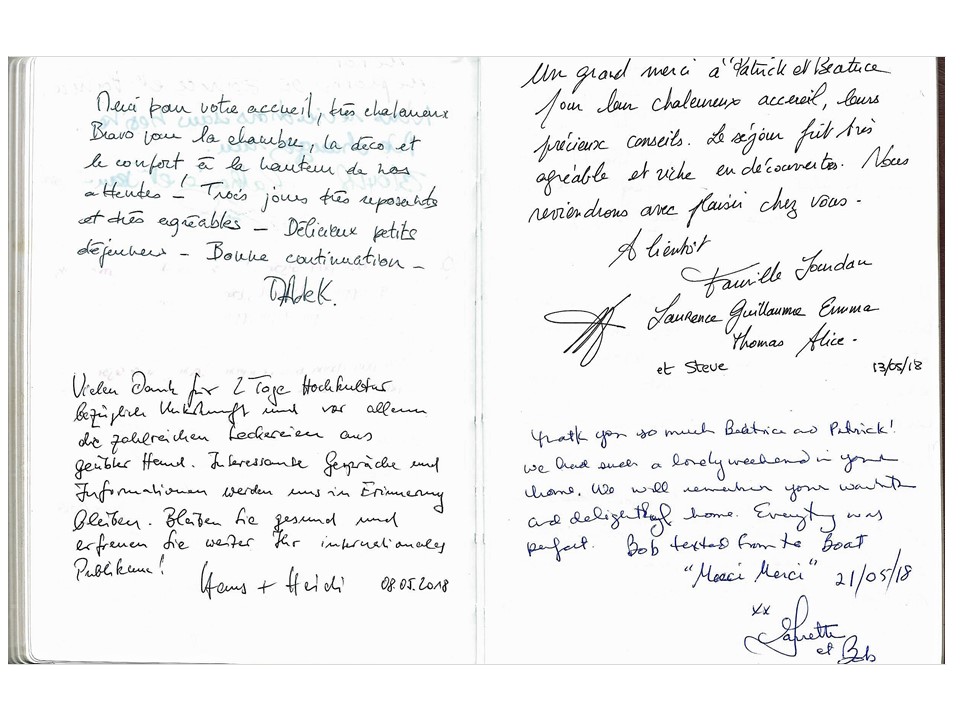 Merci pour votre accueil, très chaleureux
Bravo pour la chambre, la déco et
le confort à la hauteur de nos
attentes ! Trois jours très reposants
et très agréables – Délicieux petits
déjeuners – Bonne continuation –
Vielen Dank für 2 Tage Hochkultur
bezüglich Unterkunft und vor allem
die zahlreichen Leckereien aus
geübter Hand. Interessante Gespräche und
Informationen werden uns in Erinnerung
bleiben. Bleiben Sie gesund und
erfreuen Sie weiter Ihr internationales
Publikum!
Hans + Heidi 08.05.2018
Un grand merci à Patrick et Béatrice
pour leur chaleureux accueil, leurs
précieux conseils. Le séjour fût très
agréable et riche en découvertes. Nous
reviendrons avec plaisir chez vous.
A bientôt
Famille Jourdan
Laurence Guillaume Emma
Thomas Alice.
et Steve 13/05/18
Thank you so much Béatrice and Patrick!
we had such a lovely weekend in your
home. We will remember your warmth
and delightful home. Everything was
perfect. Bob texted from the Boat
"Merci Merci" 21/05/18
xx
et Bob